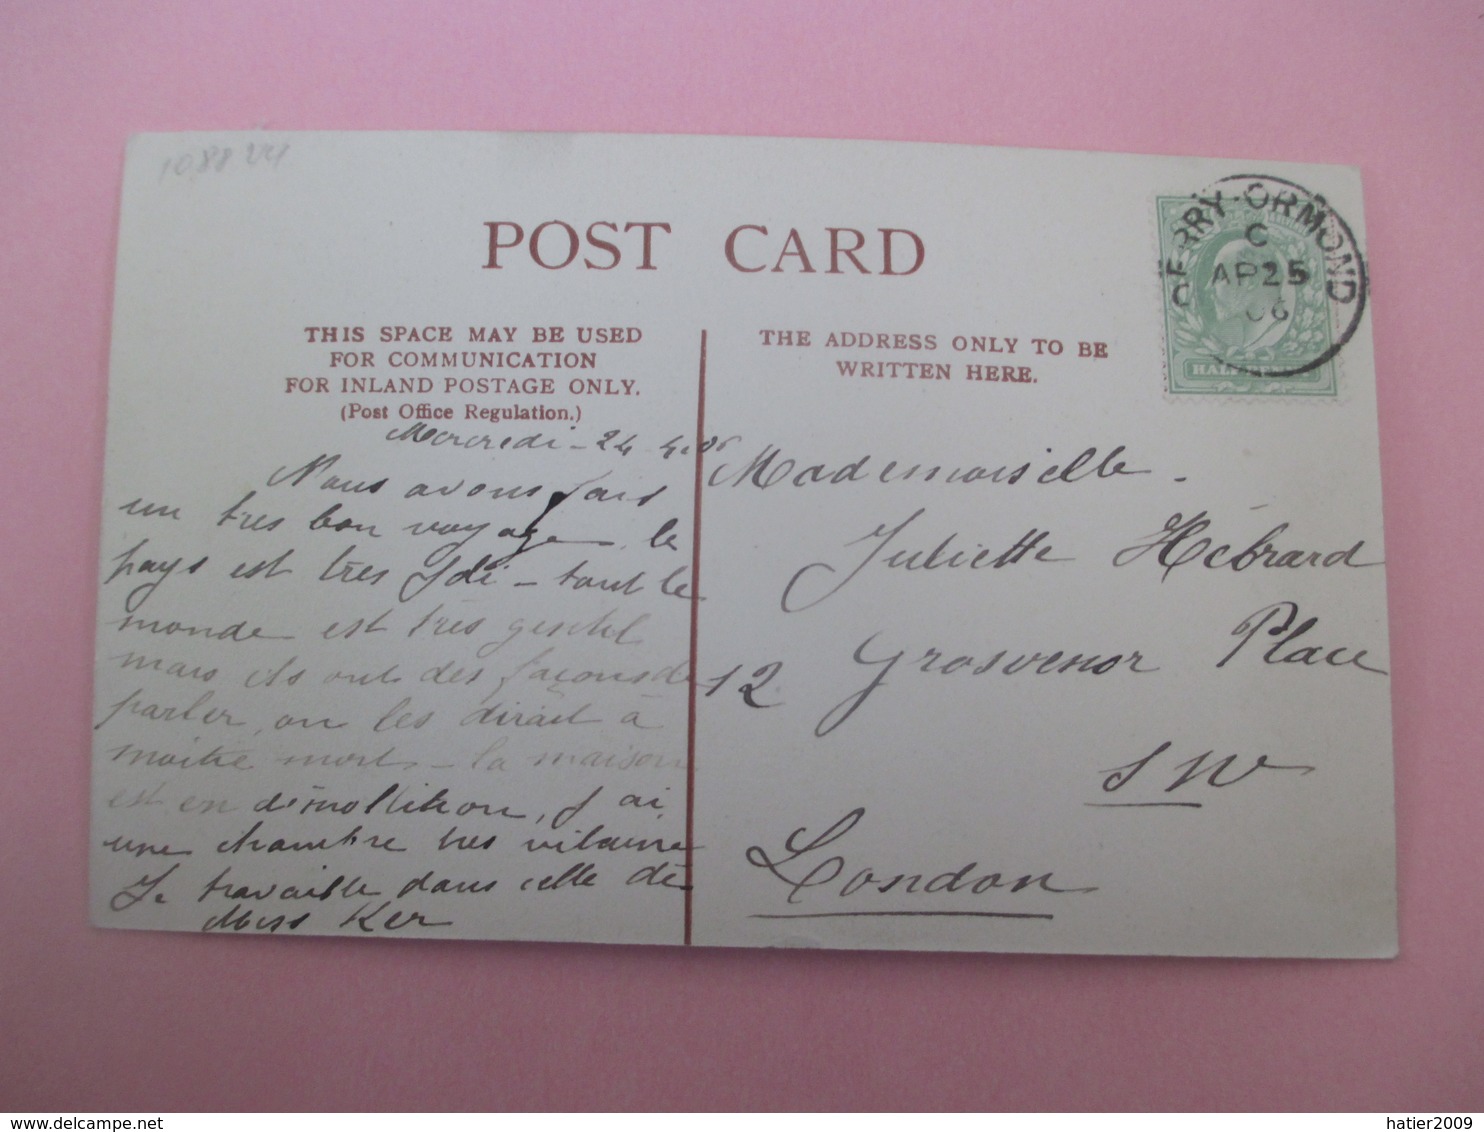 1088 VH
POST CARD
THIS SPACE MAY BE USED
FOR COMMUNICATION
FOR INLAND POSTAGE ONLY.
(Post Office Regulation.)
THE ADDRESS ONLY TO BE
WRITTEN HERE.
DERRY-ORMOND
C
AP 25
06
HAL
Mercredi - 24 4.06
Nous avons fais
un tres bon voyage le
pays est très joli - tout le
monde est très gentil
mais ils ont des façons de
parler, on les dirait à
moitié mort - la maison
est en démolition, j'ai
une chambre tres vilaine
Je travaille dans celle de
Miss Ker
Mademoiselle.
Juliette Hébrard
12 Grosvenor Place
S W
London
delcampe.net
hatier2009